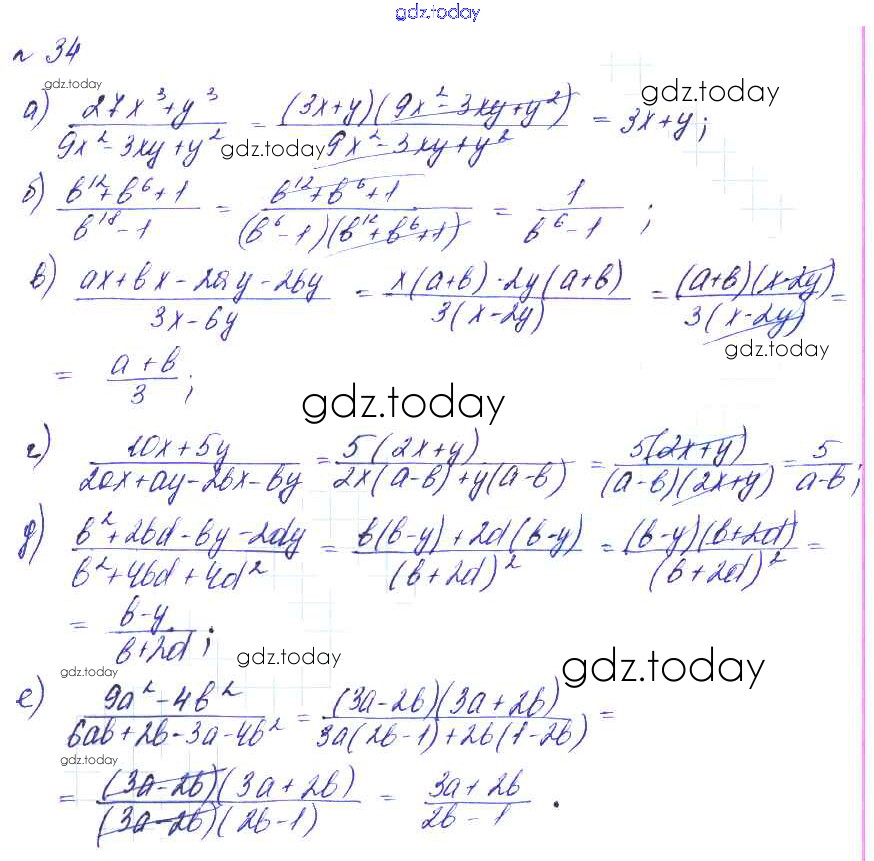 gdz.today
n 34
gdz.today
а) (27x³+y³)/(9x²-3xy+y²) = ((3x+y)(9x²-3xy+y²))/(9x²-3xy+y²) = 3x+y; gdz.today
gdz.today
б) (b¹²+b⁶+1)/(b¹⁸-1) = (b¹²+b⁶+1)/((b⁶-1)(b¹²+b⁶+1)) = 1/(b⁶-1);
в) (ax+bx-2ay-2by)/(3x-6y) = (x(a+b)-2y(a+b))/(3(x-2y)) = ((a+b)(x-2y))/(3(x-2y)) =
gdz.today
= (a+b)/3;
gdz.today
г) (10x+5y)/(2ax+ay-2bx-by) = (5(2x+y))/(2x(a-b)+y(a-b)) = (5(2x+y))/((a-b)(2x+y)) = 5/(a-b);
д) (b²+2bd-by-2dy)/(b²+4bd+4d²) = (b(b-y)+2d(b-y))/((b+2d)²) = ((b-y)(b+2d))/((b+2d)²) =
= (b-y)/(b+2d);
gdz.today
gdz.today
gdz.today
е) (9a²-4b²)/(6ab+2b-3a-4b²) = ((3a-2b)(3a+2b))/(3a(2b-1)+2b(1-2b)) =
gdz.today
= ((3a-2b)(3a+2b))/((3a-2b)(2b-1)) = (3a+2b)/(2b-1).